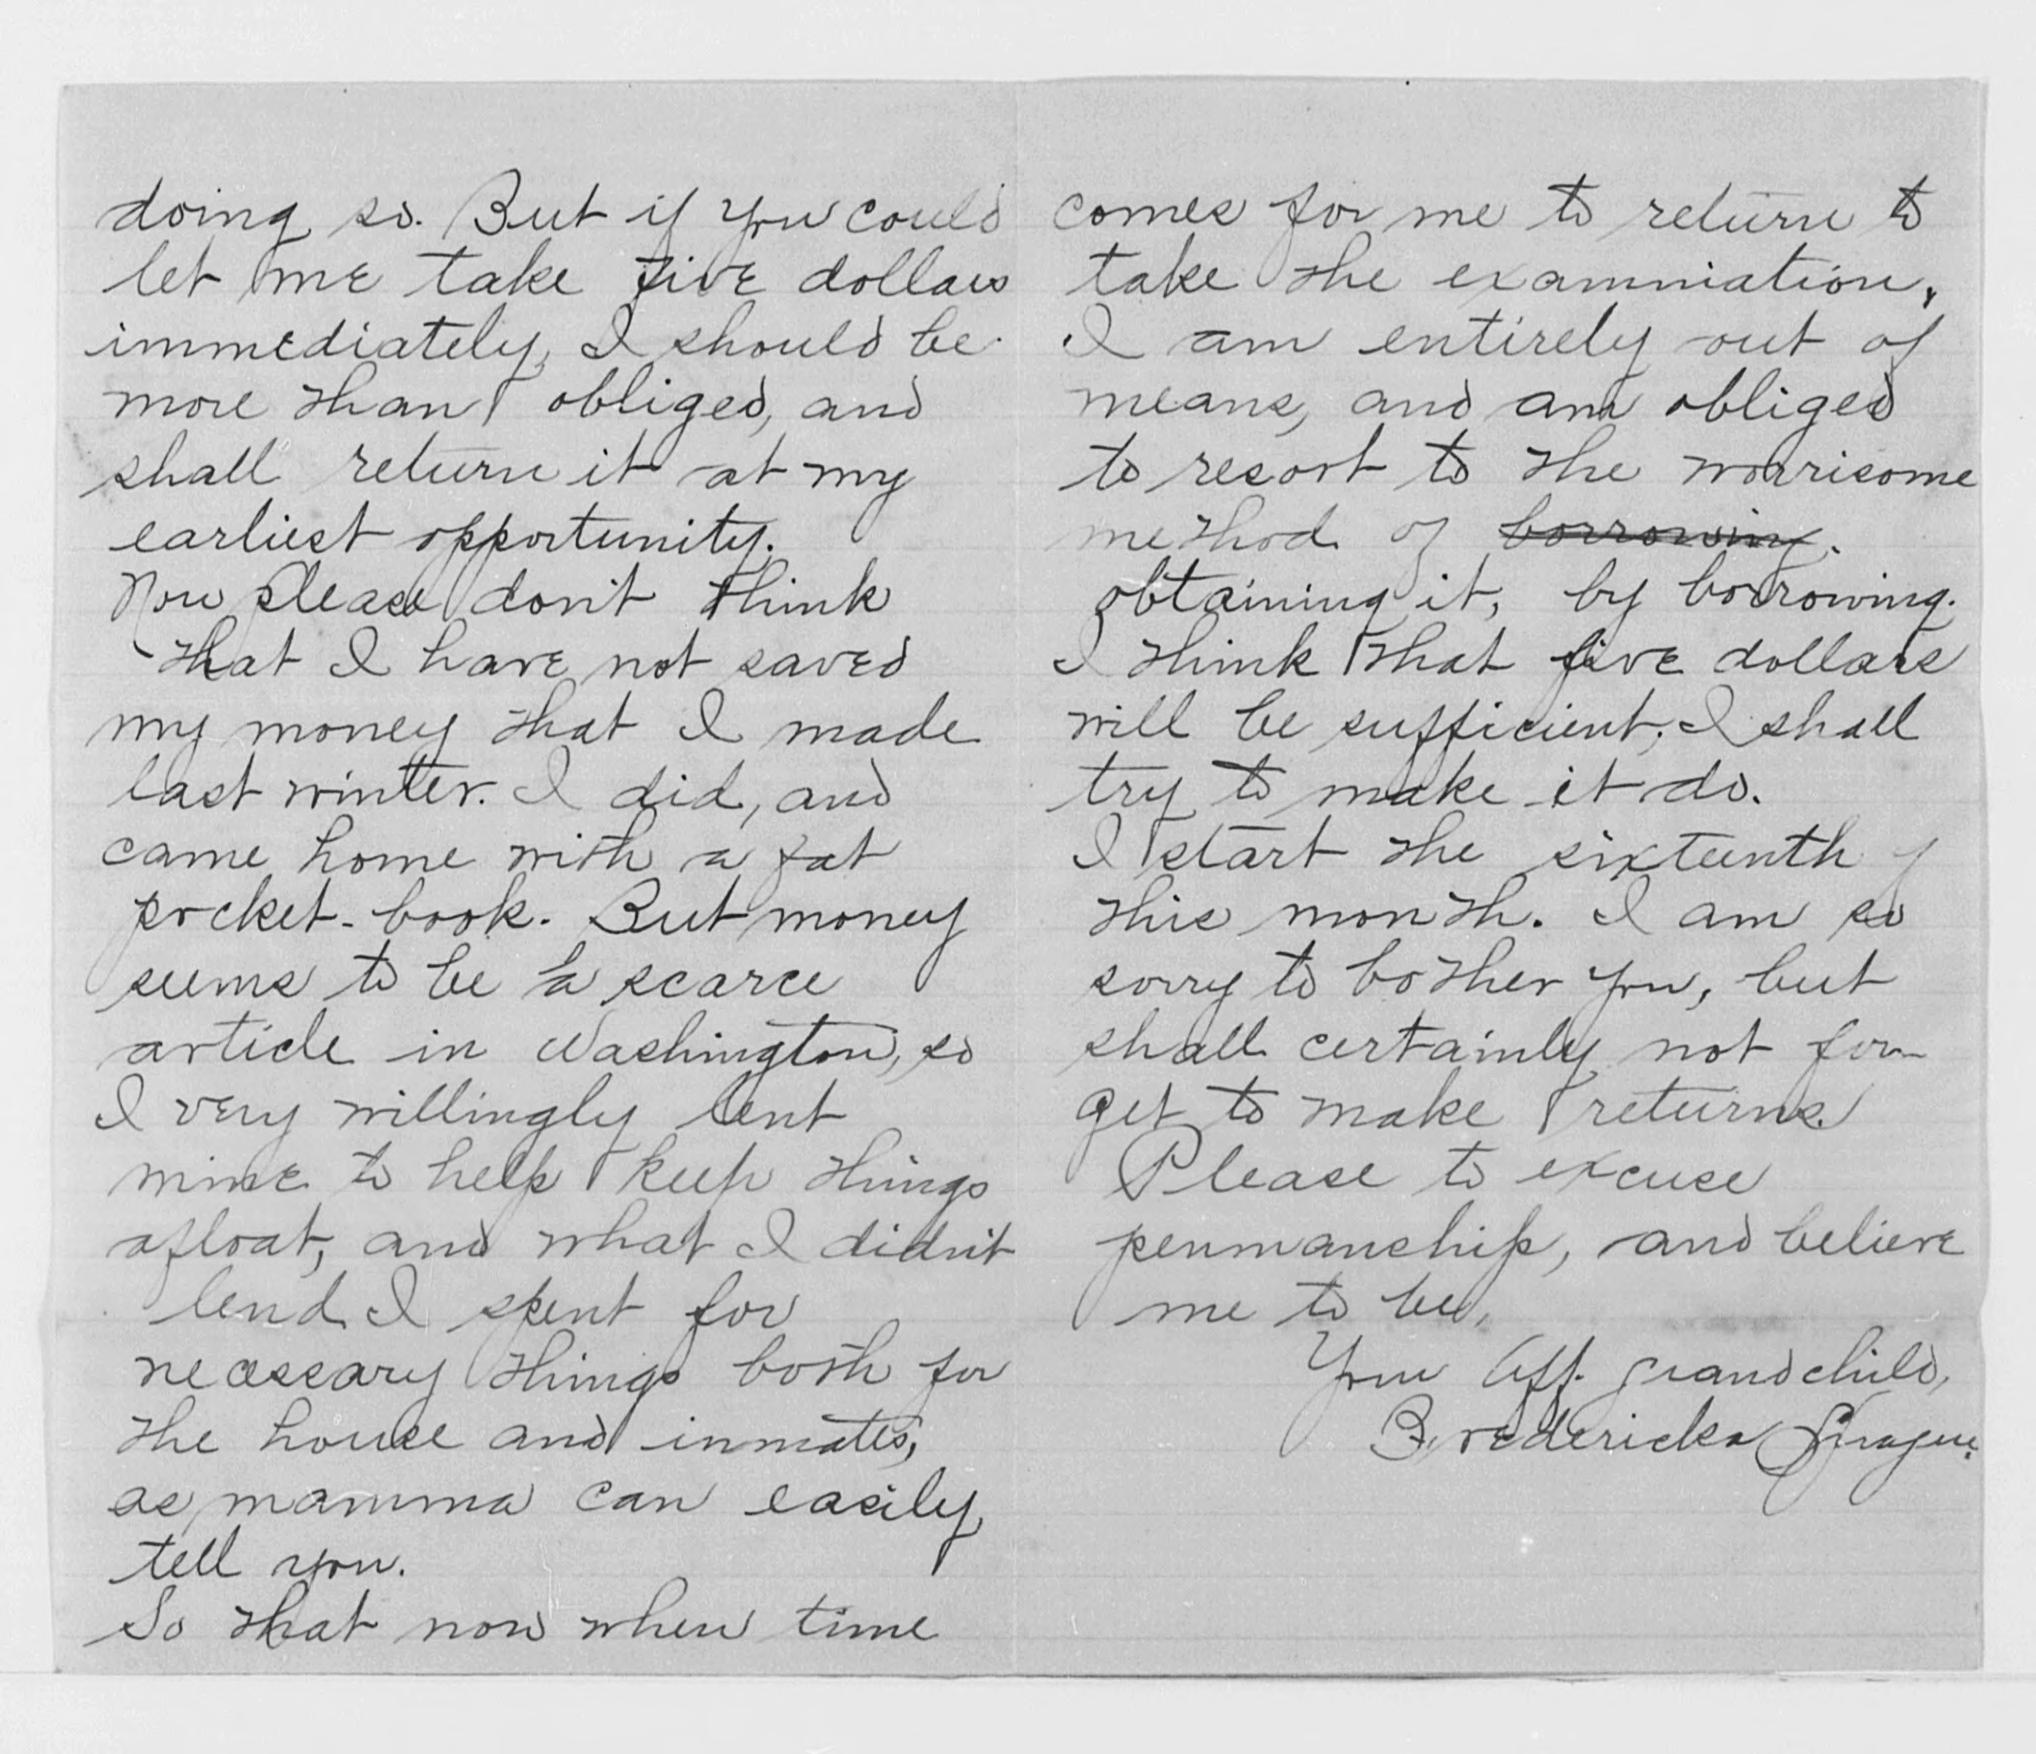 doing so. But if you could
let me take five dollars
immediately, I should be
more than obliged, and
shall return it at my
earliest opportunity.
Now please don't think
that I have not saved
my money that I made
last winter. I did, and
came home with a fat
pocket-book. But money
seems to be a scarce
article in Washington, so
I very willingly lent
mine to help keep things
afloat, and what I didn't
lend I spent for
necessary things both for
the house and inmates,
as mamma can easily
tell you.
So that now when time
comes for me to return to
take the examination,
I am entirely out of
means, and am obliged
to resort to the worrisome
method of borrowing.
obtaining it, by borrowing.
I think that five dollars
will be sufficient; I shall
try to make it do.
I start the sixteenth of
this month. I am so
sorry to bother you, but
shall certainly not for-
get to make returns.
Please to excuse
penmanship, and believe
me to be,
Your Aff. grandchild,
Fredericka Sprague.